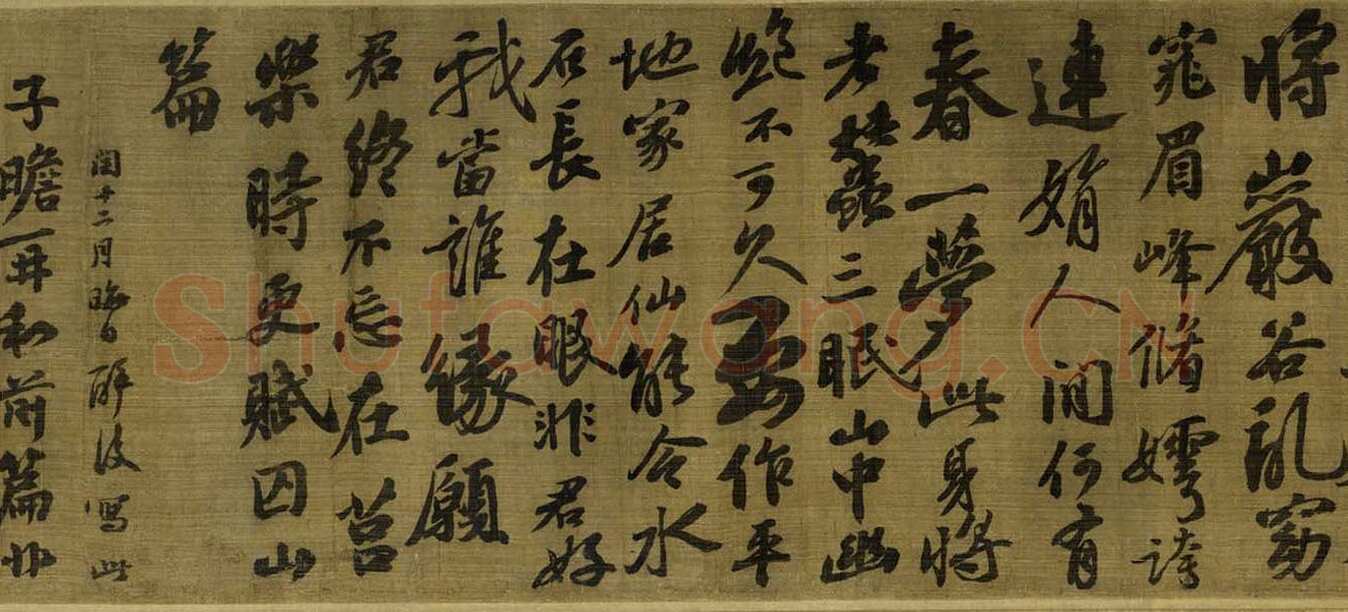 將巖谷乱窈
窕眉峰脩嫮誇
連娟人間何有
春一夢此身將
老蠶三眠山中幽
絶不可久要作平
地家居仙能令水
石長在眼非君好
我當誰緣願
君終不忘在莒
樂時更賦囚山
篇
閏十二月晦日醉後寫此
子瞻再和前篇非
Shufawang.CN